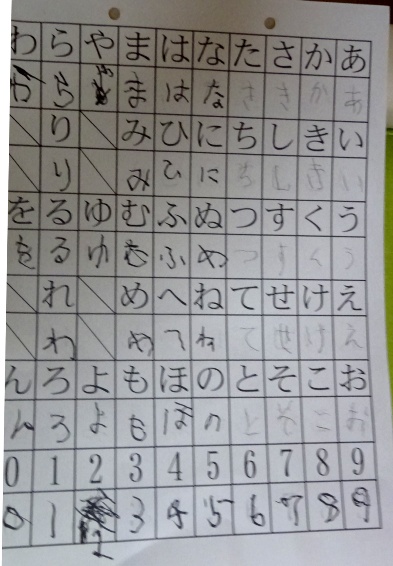 わ らやまはなたさかあ
わ らやまはなたさかあ
り みひにちしきい
り みひにちしきい
をるゆむふぬつすくう
をるゆむふぬつすくう
れ めへねてせけえ
れ めへねてせけえ
んろよもほのとそこお
んろよもほのとそこお
0 1 2 3 4 5 6 7 8 9
0 1 2 3 4 5 6 7 8 9